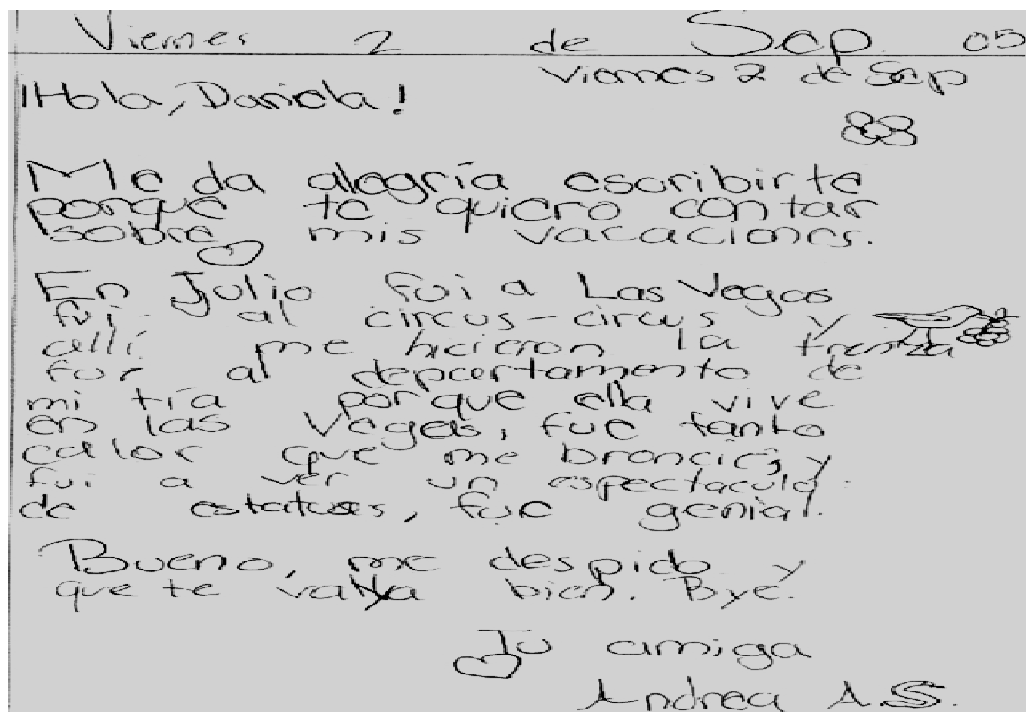 Viernes 2 de Sep 05
Viernes 2 de Sep
¡Hola, Daniela!
Me da alegría escribirte
porque te quiero contar
sobre mis vacaciones.
En Julio fui a Las Vegas
fui al circus-circus y
allí me hicieron la trenza
fui al departamento de
mi tía porque ella vive
en las Vegas, fue tanto
calor que me broncié, y
fui a ver un espectaculo
de estatuas, fue genial.
Bueno, me despido y
que te valla bien. Bye.
Tu amiga
Andrea A.S.